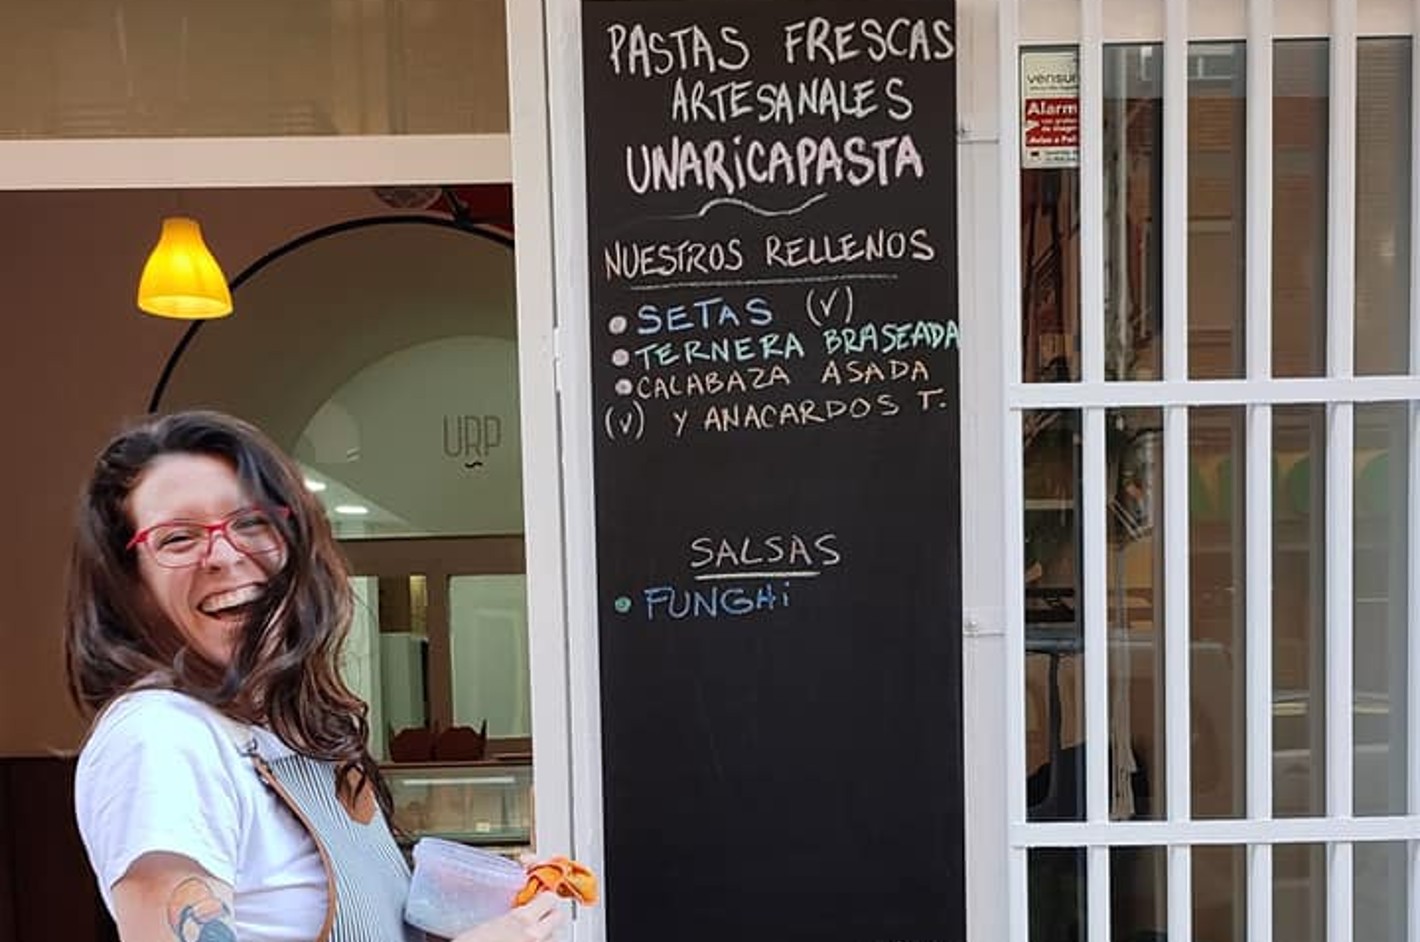 PASTAS FRESCAS
ARTESANALES
UNARiCAPASTA
NUESTROS RELLENOS
• SETAS (V)
• TERNERA BRASEADA
• CALABAZA ASADA
(V) Y ANACARDOS T.
SALSAS
• FUNGHi
URP
Alarm